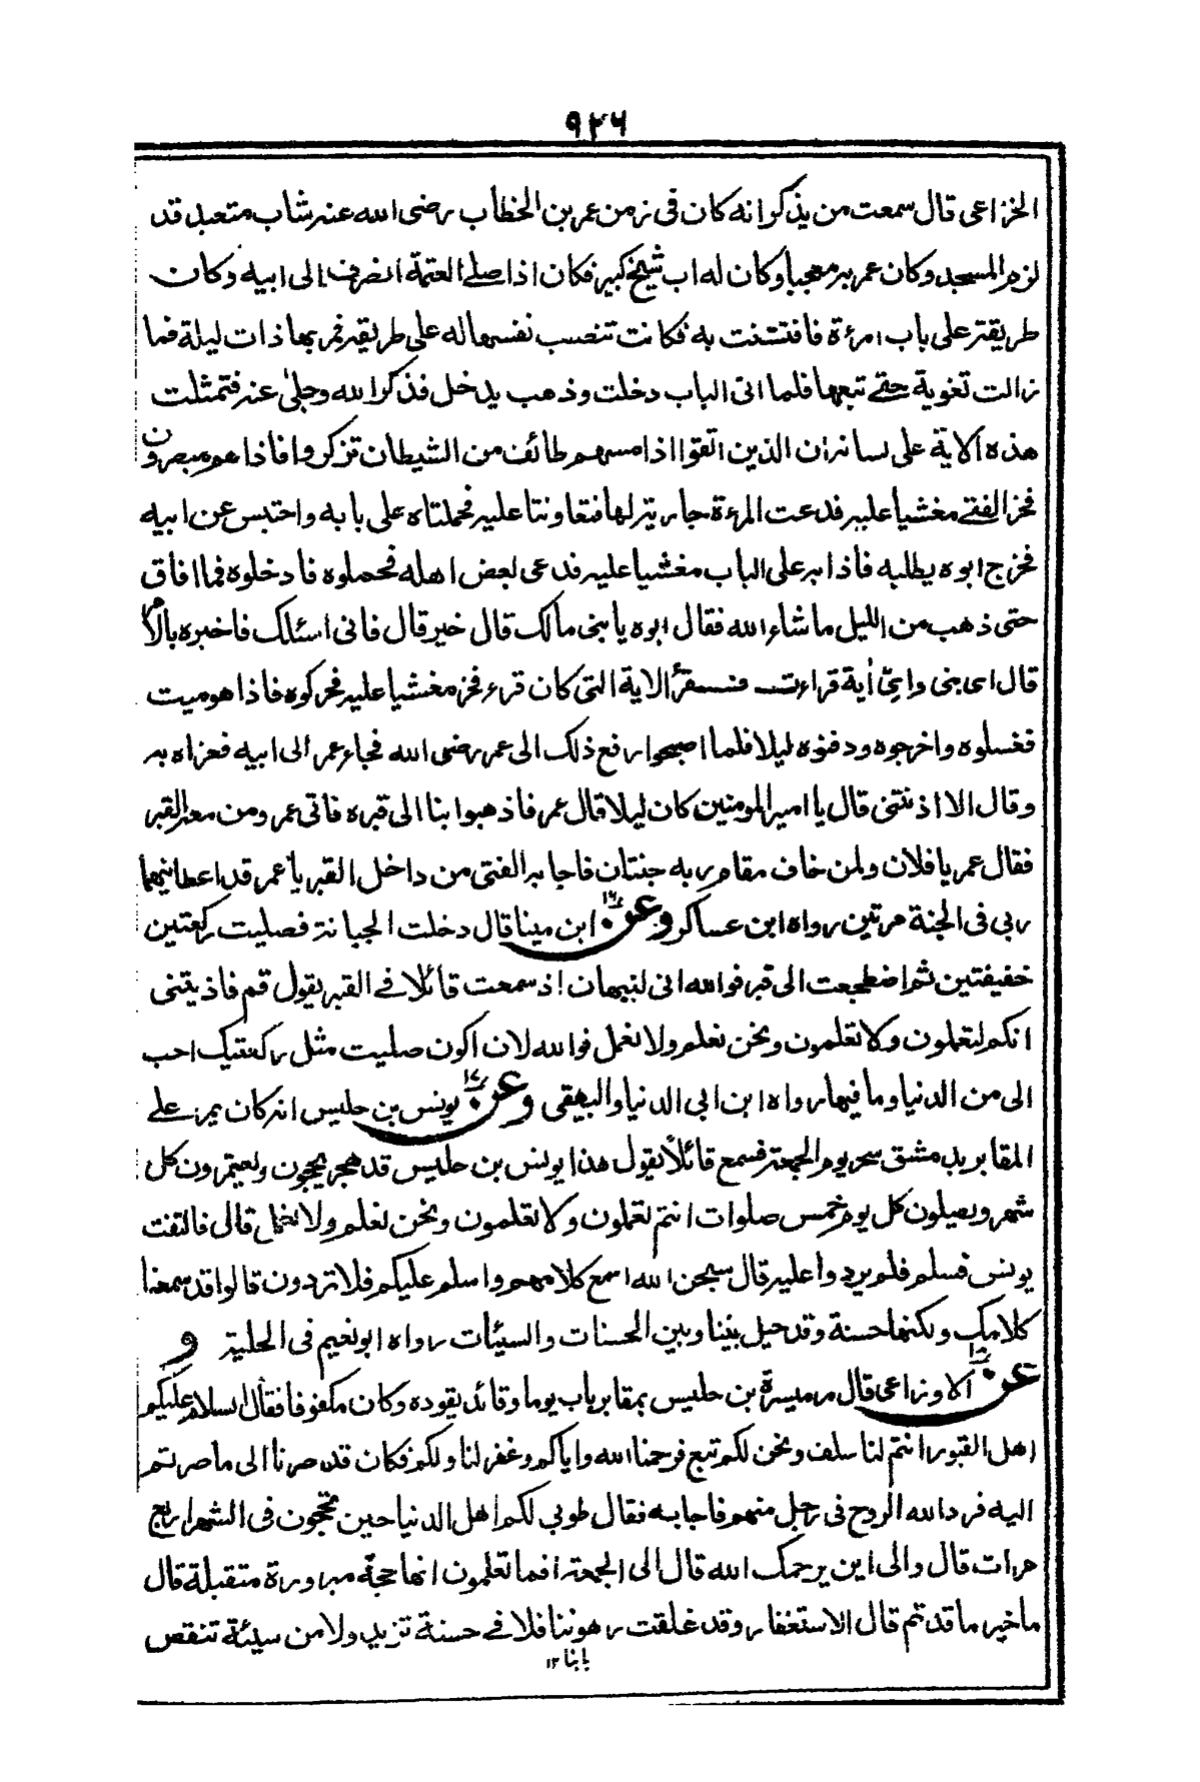 ٩٢٦
الخزاعى قال سمعت من يذكر انه كان فى زمن عمر بن الخطاب رضى الله عنه شاب متعبد قد
لزم المسجد وكان عمر به معجبا وكان له اب شيخ كبير فكان اذا صلے العتمة انصرف الى ابيه وكان
طريقه على باب امرءة فافتتنت به فكانت تنصب نفسها له على طريقه فمر بها ذات ليلة فما
زالت تغويه حتے تبعها فلما اتى الباب دخلت وذهب يدخل فذكر الله وجلىٰ عنه فتمثلت
هذه الاية على لسانه ان الذين اتقوا اذا مسهم طائف من الشيطان تذكروا فاذا هم مبصرون
فخر الفتے مغشيا عليه فدعت المرءة جارية لها فتعاونتا عليه فحملتاه على بابه واحتبس عن ابيه
فخرج ابوه يطلبه فاذا به على الباب مغشيا عليه فدعى بعض اهله فحملوه فادخلوه فما افاق
حتى ذهب من الليل ما شاء الله فقال ابوه يا بنى مالك قال خير قال فانى اسئلك فاخبره بالامر
قال اى بنى واىّ اٰية قراءت فنسقرأ الاية التى كان قرء فخر مغشيا عليه فحركوه فاذا هو ميت
فغسلوه واخرجوه ودفنوه ليلا فلما اصبحوا رفع ذلك الى عمر رضى الله فجاء عمر الى ابيه فعزاه به
وقال الا اذنتنى قال يا امير المومنين كان ليلا قال عمر فاذهبوا بنا الى قبره فاتى عمر ومن معه القبر
فقال عمر يا فلان ولمن خاف مقام ربه جنتان فاجابه الفتى من داخل القبر يا عمر قد اعطانيهما
ربى فى الجنة مرتين رواه ابن عساكر وعن ابن مينا قال دخلت الجبانة فصليت ركعتين
خفيفتين ثم اضطجعت الى قبر فوالله انى لنبهان اذ سمعت قائلا فے القبر يقول قم فاذيتنى
انكم لتعملون ولا تعلمون ونحن نعلم ولا نعمل فوالله لان اكون صليت مثل ركعتيك احب
الى من الدنيا وما فيها رواه ابن ابى الدنيا والبيهقى وعن يونس بن حلبس انه كان يمر علے
المقابر بدمشق سحر يوم الجمعة فسمع قائلاً يقول هذا يونس بن حلبس قد هجر يحجون ويعتمرون كل
شهر ويصلون كل يوم خمس صلوات انتم تعملون ولا تعلمون ونحن نعلم ولا نعمل قال فالتفت
يونس فسلم فلم يردوا عليه قال سبحن الله اسمع كلامهم واسلم عليكم فلا تردون قالوا قد سمعنا
كلامك ولكنها حسنة وقد حيل بيننا وبين الحسنات والسيئات رواه ابو نعيم فى الحلية و
عن الاوزاعى قال مر ميسرة بن حلبس بمقابر باب يوما وقائد يقوده وكان مكفوفا فقال السلام عليكم
اهل القبور انتم لنا سلف ونحن لكم تبع فرحمنا الله واياكم وغفر لنا ولكم فكان قد صرنا الى ما صرتم
اليه فرد الله الروح فى رجل منهم فاجابه فقال طوبى لكم اهل الدنيا حين تحجون فى الشهر اربع
مرات قال والى اين يرحمك الله قال الى الجمعة افما تعلمون انها حجة مبرورة متقبلة قال
ما خير ما قدتم قال الاستغفار وقد غلقت رهوننا فلا فے حسنة تزيد ولا من سيئة تنقص